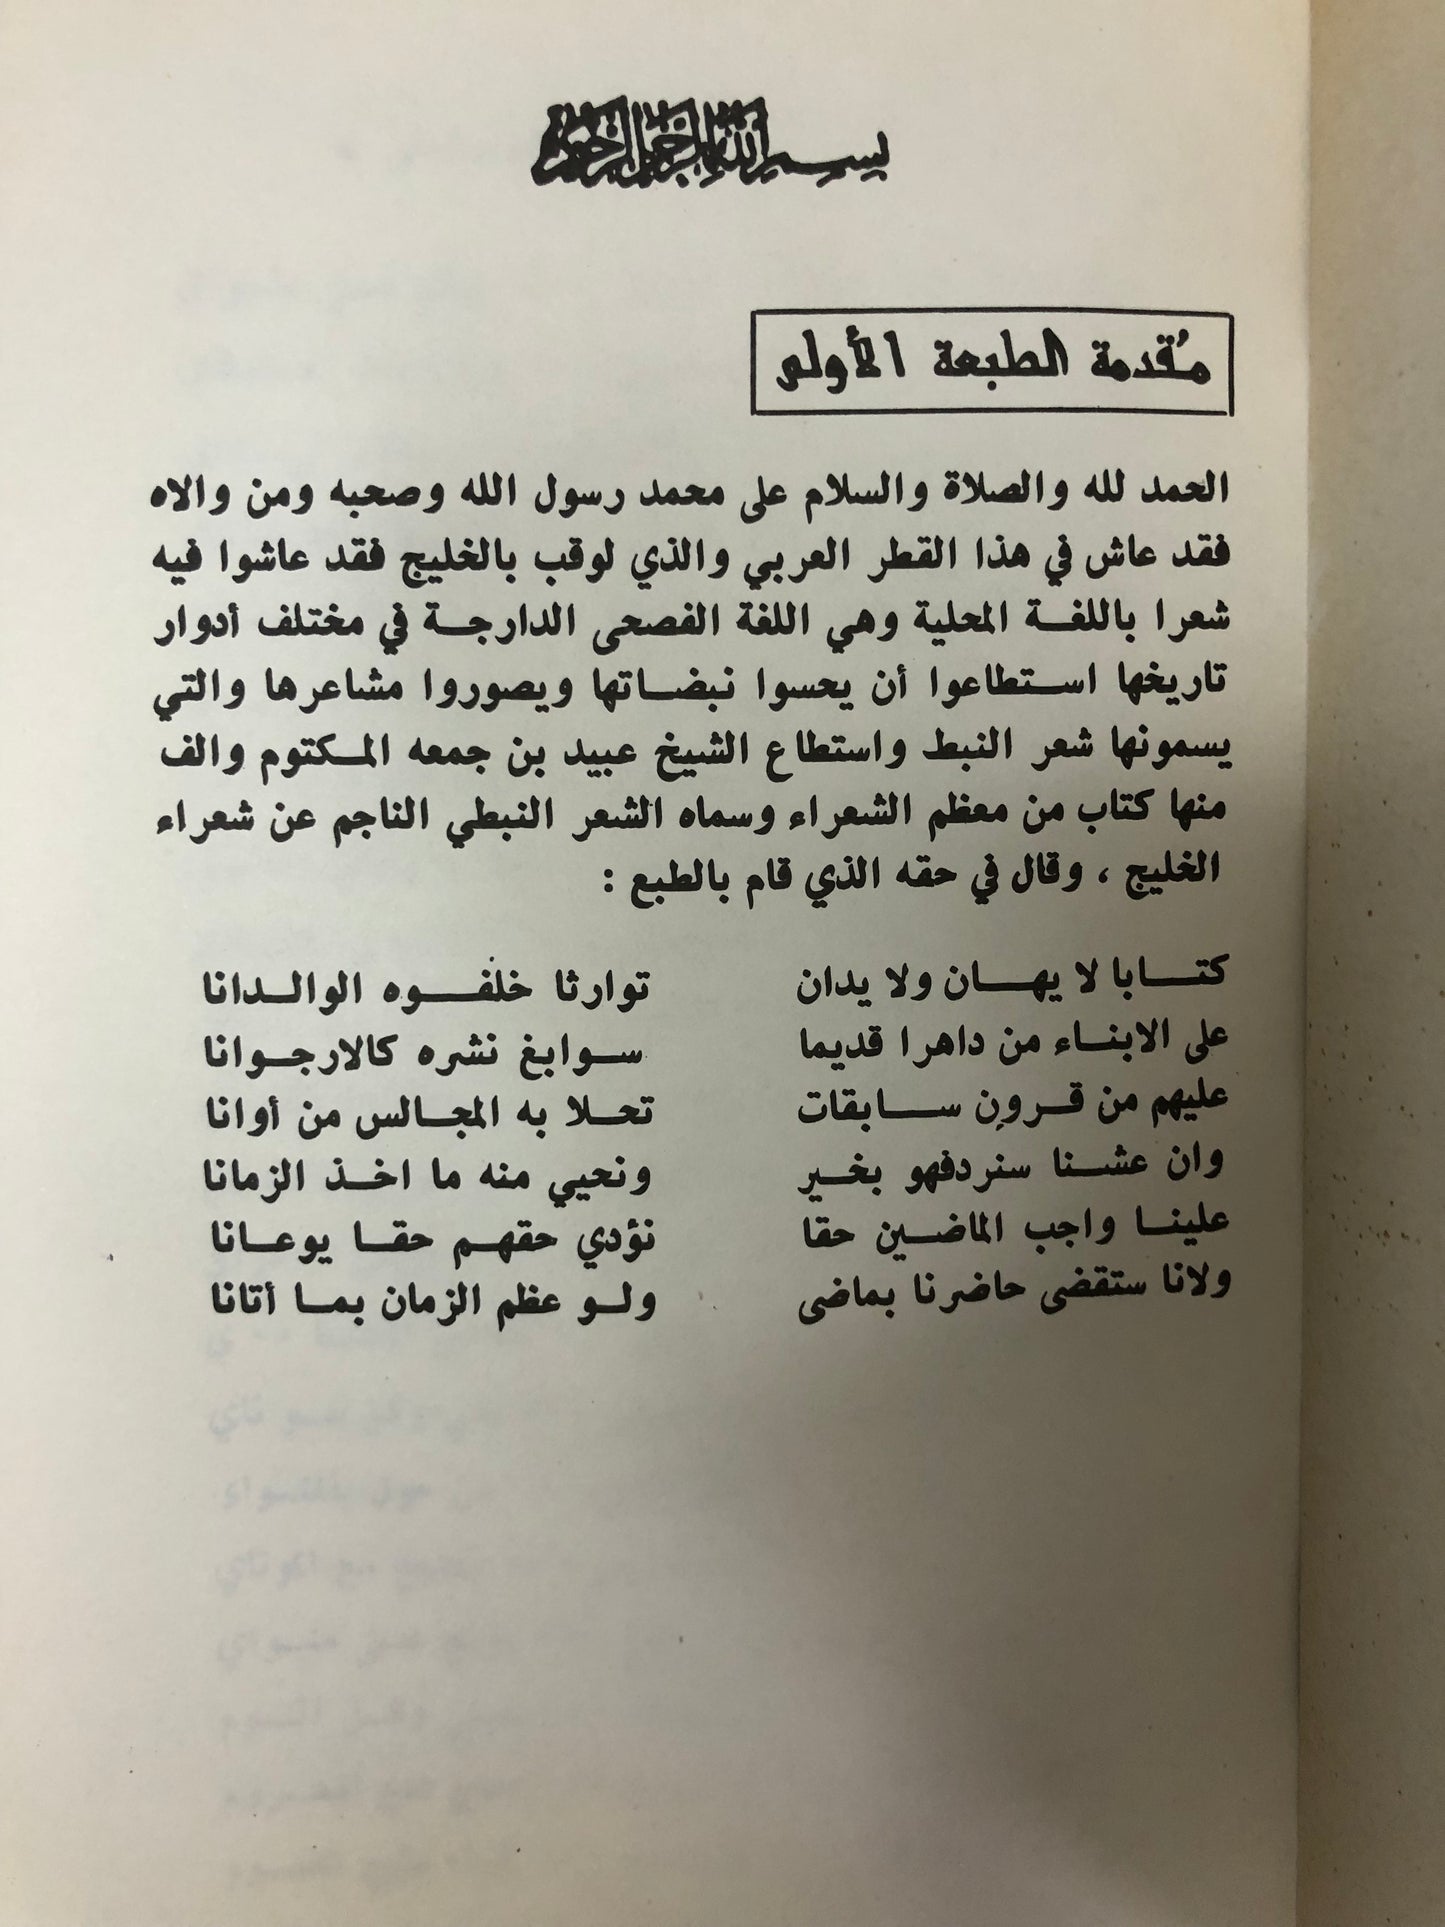 بسم الله الرحمن الرحيم
مُقدمة الطبعة الأولى
الحمد لله والصلاة والسلام على محمد رسول الله وصحبه ومن والاه
فقد عاش في هذا القطر العربي والذي لوقب بالخليج فقد عاشوا فيه
شعرا باللغة المحلية وهي اللغة الفصحى الدارجة في مختلف أدوار
تاريخها استطاعوا أن يحسوا نبضاتها ويصوروا مشاعرها والتي
يسمونها شعر النبط واستطاع الشيخ عبيد بن جمعه المكتوم والف
منها كتاب من معظم الشعراء وسماه الشعر النبطي الناجم عن شعراء
الخليج ، وقال في حقه الذي قام بالطبع :
كتابا لا يهان ولا يدان توارثا خلفوه الوالدانا
على الابناء من داهرا قديما سوابغ نشره كالارجوانا
عليهم من قرون سابقات تحلا به المجالس من أوانا
وان عشنا سنردفهو بخير ونحيي منه ما اخذ الزمانا
علينا واجب الماضين حقا نؤدي حقهم حقا يوعانا
ولانا ستقضى حاضرنا بماضى ولو عظم الزمان بما أتانا